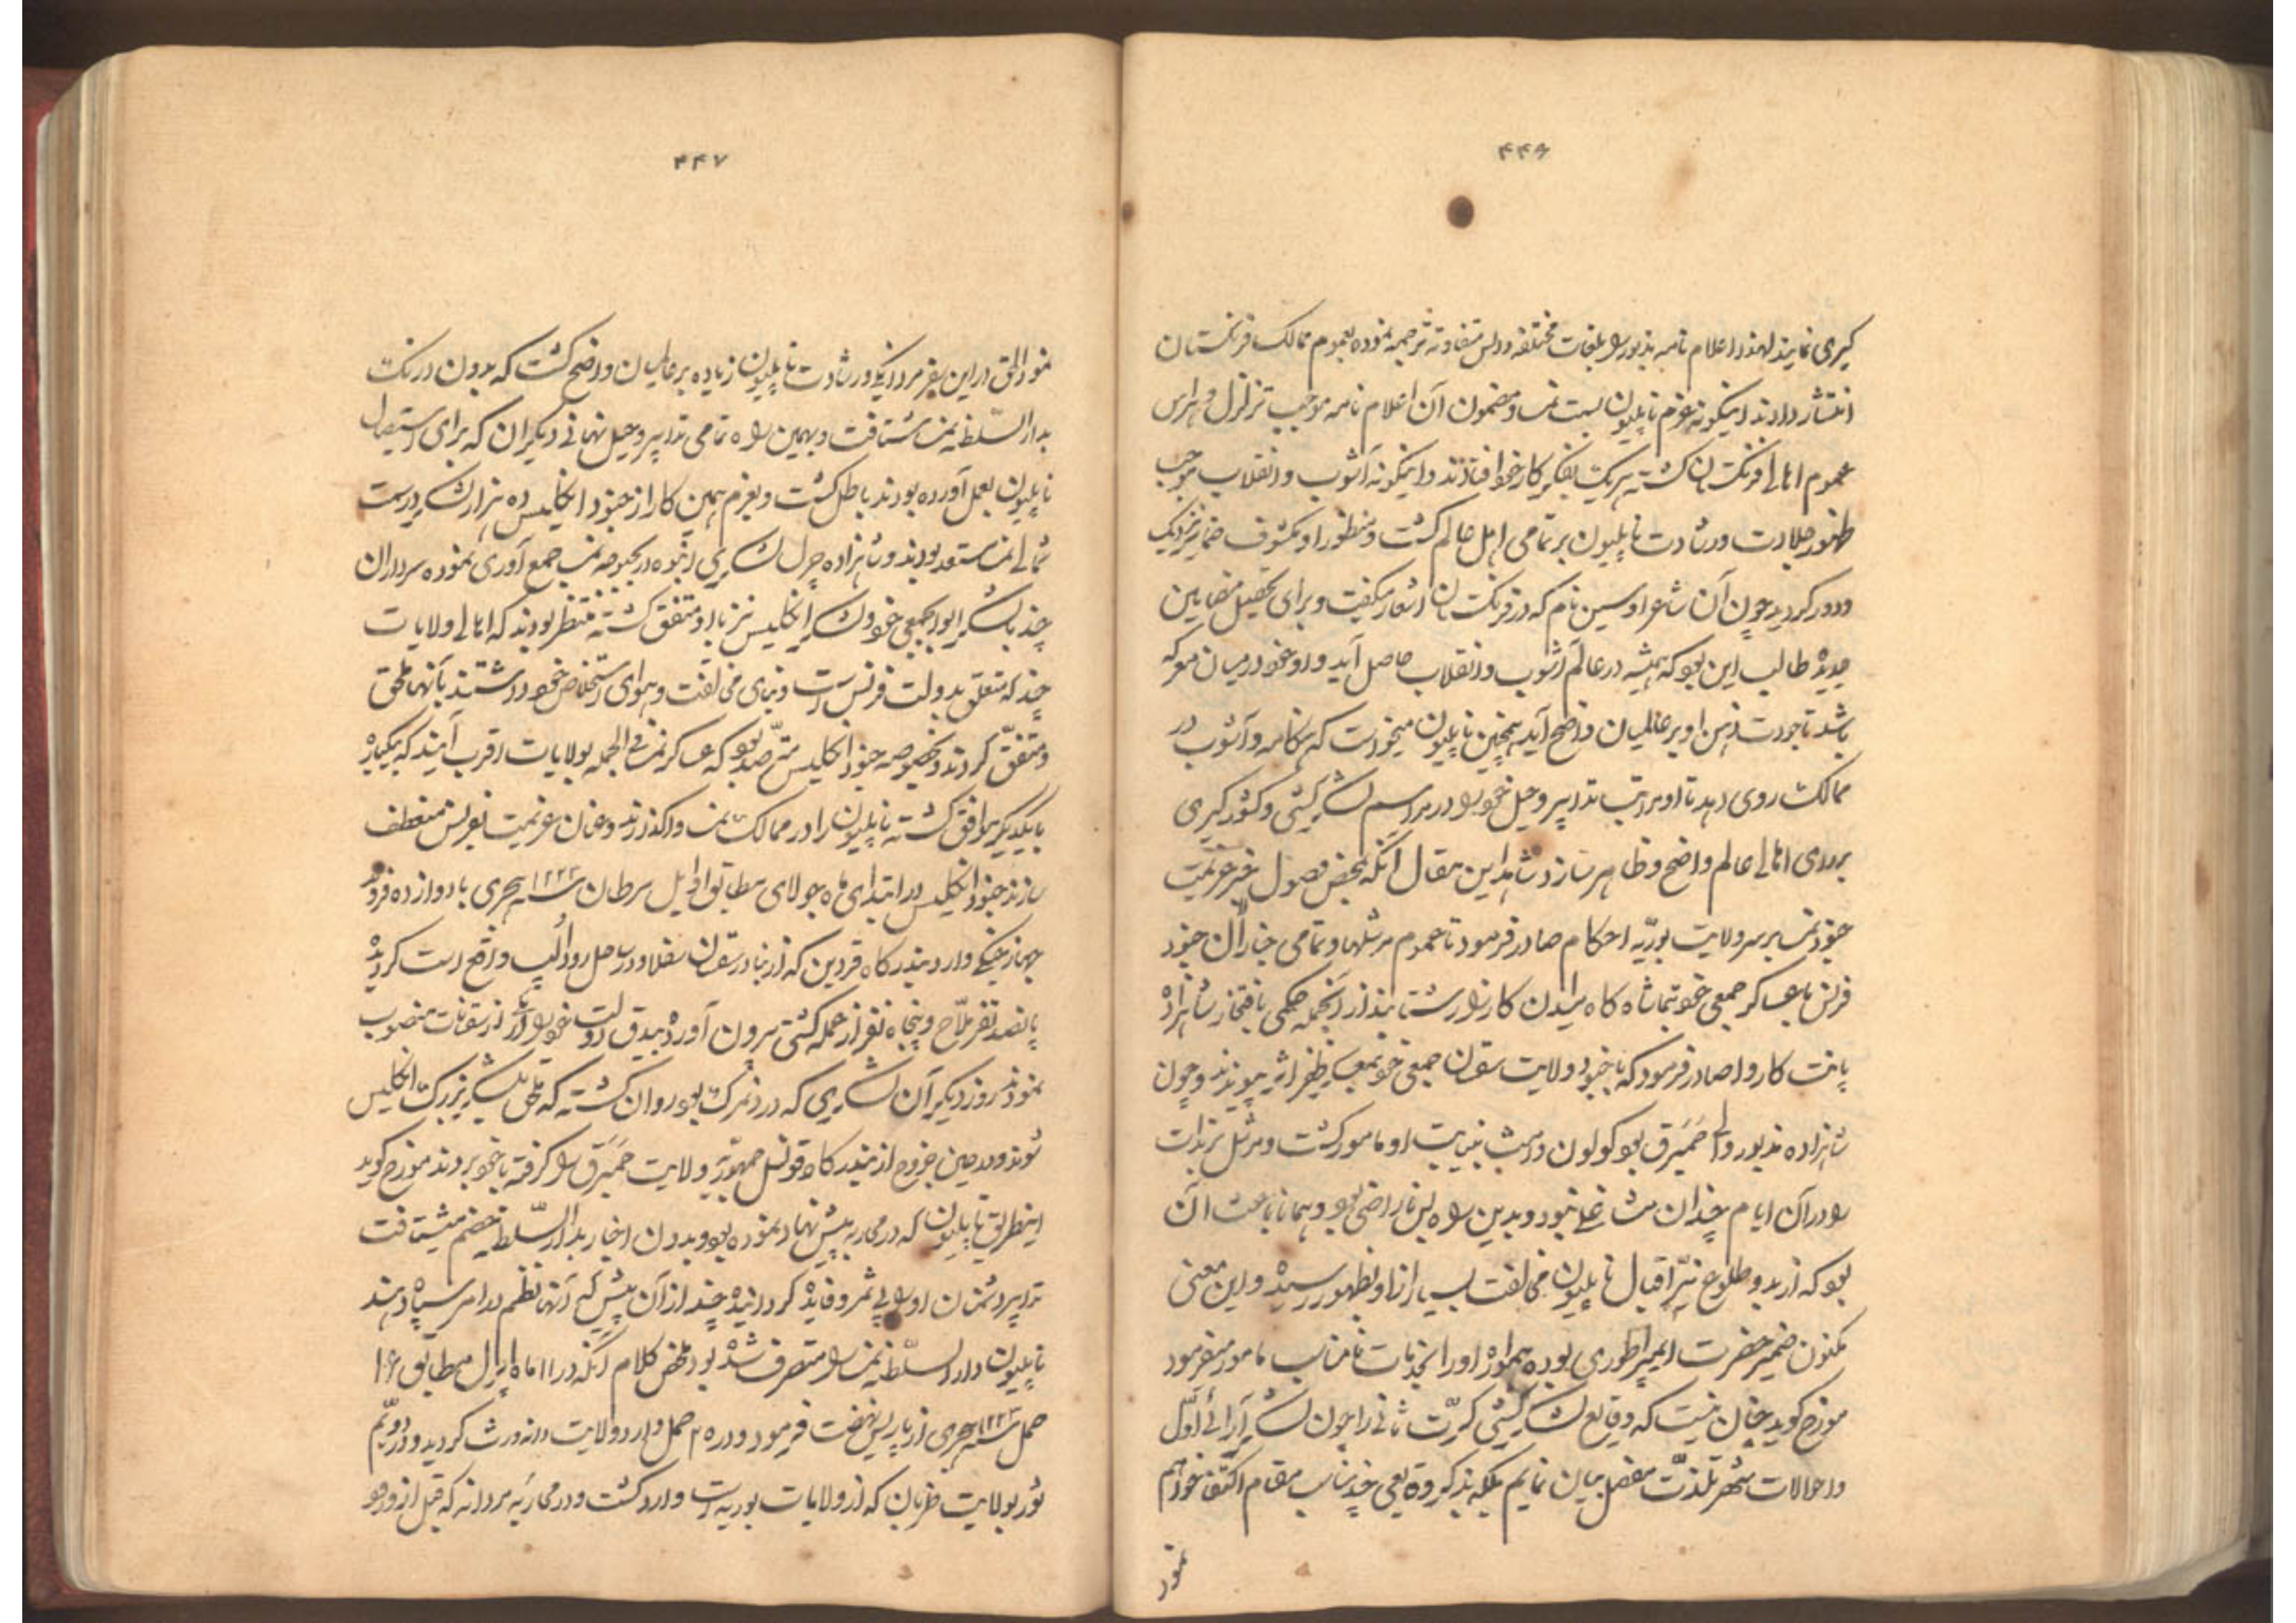 ۴۴۶
گیری نمایند لهذا اعلام نامه مذبور را بلغات مختلفه و السن متفاوته ترجمه نموده بعموم ممالک فرنگستان
انتشار دادند اینگونه عزم ناپلیون بسمت نمسا و مضمون آن اعلام نامه موجب تزلزل و هراس
عموم اهالی فرنگستان گشته هریک بفکر کار خود افتادند و اینگونه آشوب و انقلاب موجب
ظهور جلادت و رشادت ناپلیون بر تمامی اهل عالم گشت و منظور او مکشوف ضمایر نزدیک
و دور گردید چون آن شاعر اوسین نام که در فرنگستان اشعار میگفت و برای تحصیل مضامین
جدیده طالب این بود که همیشه در عالم آشوب و انقلاب حاصل آید و او خود در میان معرکه
باشد تا جودت ذهن او بر عالمیان واضح آید همچنین ناپلیون میخواست که هنگامه و آشوب در
ممالک روی دهد تا او مراتب تدابیر و حیل خود را در مراسم لشکرکشی و کشورگیری
بر رای اهالی عالم واضح و ظاهر سازد شاهد این مقال آنکه بمحض وصول خبر عزیمت
جنود نمسا بر سر ولایت بوریه احکام صادر فرمود تا عموم مرشلها و تمامی جنرالان جنود
فرنس با عساکر جمعی خود بتماشاه گاه میدان کارزار شتابند از آنجمله حکمی بافتخار شاهزاده
پانت کاروا صادر فرمود که با جنود ولایت سقسان جمعی خود بعساکر ظفر اثر پیوندند و چون
شاهزاده مذبور والی حمبرق بود کولون دامث بنیابت او مامور گشت و مرشل برندات
را در آن ایام چندان مشاغلی نبود و بدین واسطه بس ناراضی بود و همانا باعث آن
بود که از بدو طلوع نیّر اقبال ناپلیون مخالفت بسیار از او بظهور رسیده و این معنی
مکنون ضمیر حضرت ایمپراطوری بوده همواره او را بخدمات نامناسب مامور میفرمود
مورخ گوید چنان نیست که وقایع لشکرکشی کرّت ثانی را چون لشکرآرائی اوّل
و احوالات شهر بلذت مفصل بیان نمایم بلکه بذکر وقایعی چند مناسب مقام اکتفا خواهم
نمود
۴۴۷
نمود الحق در این سفر مردانگی و رشادت ناپلیون زیاده بر عالمیان واضح گشت که بدون درنگ
بدارالسّلطنه نمسا شتافت و بهمین واسطه تمامی تدابیر و حیل نهانی دیگران که برای استیصال
ناپلیون بعمل آورده بودند باطل گشت و بعزم همین کار از جنود انگلیس ده هزار لشکر در سمت
شمالی نمسا مستعد بودند و شاهزاده چرل لشکری انبوه در بحبوحه نمسا جمع آوری نموده سرداران
چند با لشکر ابوابجمعی خود و لشکر انگلیس نیز با او متفق گشته منتظر بودند که اهالی ولایات
چند که متعلق بدولت فرنس است و بنای مخالفت و هوای استخلاص خود داشتند بآنها ملحق
و متفق گردند و بخصوصه جنود انگلیس مترصد بود که عساکر نمسا فی الجمله بولایات اقرب آیند که یکباره
با یکدیگر موافق گشته ناپلیون را در ممالک نمسا واگذارند و عنان عزیمت بفرنس منعطف
سازند جنود انگلیس در ابتدای ماه جولای مطابق اوایل سرطان سنه ۱۲۲۴ هجری با دوازده فروند
جهاز جنگی وارد بندرگاه قردین که از بنادر سقسان سفلا و در ساحل رود الپ واقع است گردیده
پانصد نفر ملاّح و پنجاه نفر از عمله کشتی بیرون آورده بیدق دولت خود را در آن از سقنات منصوب
نمودند روز دیگر آن لشکری که در دنمرک بود روان گشته که ملحق بلشکر بزرگ انگلیس
شوند و در حین خروج از بندرگاه قونسل جمهوریّه ولایت حمبرق را گرفته با خود بردند مورخ گوید
اینطریق ناپلیون که در محاربه پیش نهاد نموده بود و بدون اخبار بدارالسّلطنه خصم میشتافت
تدابیر دشمنان او را بی ثمر و فایده گردانیده چند از آن پیش که آنها نظم در امر سپاه دهند
ناپلیون دارالسّلطنه نمسا را متصرف شده بود ملخص کلام آنکه در ۱۱ ماه اپرل مطابق ۱۶
حمل سنه ۱۲۲۴ هجری از پاریس نهضت فرمود و در ۲۰ حمل وارد ولایت دانه ورث گردید و در دویّم
ثور بولایت ظربان که از ولایات بوریه است وارد گشت و در محاربه مردانه که قبل از ورود